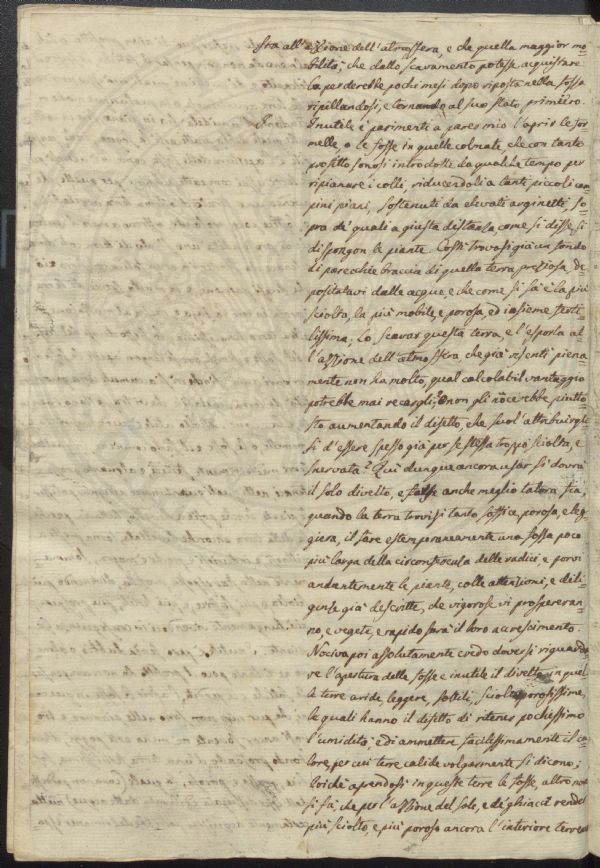 sta all'azzione dell'atmosfera, e che quella maggior mo=
bilità, che dallo scavamento potesse acquistare
la perderebbe pochi mesi dopo riposta nella fossa
ripillandosi, e tornando al suo stato primiero.
Inutile è parimenti a parer mio l'aprir le for=
melle, o le fosse in quelle colmate, che con tanto
profitto sonosi introdotte da qualche tempo per
ripianare i colli, riducendoli a tanti piccoli cam=
pini piani, sostenuti da elevati arginetti, so=
pra de' quali a giusta distanza come si disse, si
dispongon le piante. Costì trovasi già un fondo
di parecchie braccia di quella terra preziosa, de
positatavi dalle acque, e che come si sa è la più
sciolta, la più mobile, e porosa, ed insieme ferti=
lissima; Lo scavar questa terra, e l'esporla al=
l'azzione dell'atmosfera, che già risentì piena=
mente non ha molto, qual calcolabil vantaggio
potrebbe mai recargli? O non gli nocerebbe piutto=
sto aumentando il difetto, che suol'attribuirgli=
si d'essere spesso già per se stessa troppo sciolta, e
snervata? Quì dunque ancora usar si dovrà
il solo divelto, e forse anche meglio talora fia,
quando la terra trovisi tanto soffice, porosa, e leg=
giera, il fare estemporaneamente una fossa poco
più larga della circonferenza delle radici, e porvi
andantemente le piante, colle attenzioni, e dili=
genze già descritte, che vigorose vi prospereran=
no, e vegete, e rapido sarà il loro accrescimento.
Nociva poi assolutamente credo doversi riguarda=
re l'apertura delle fosse e inutile il divelto in quel=
le terre aride, leggere, sottili, sciolte, porosissime,
le quali hanno il difetto di ritener pochissimo
l'umidità, e di ammetter facilissimamente il ca=
lore, per cui terre calide volgarmente si dicono;
Poichè aprendosi in queste terre le fosse, altro non
si fà, che per l'azzione del sole, e de' ghiacci render
più sciolto, e più poroso ancora l'interiore terreno